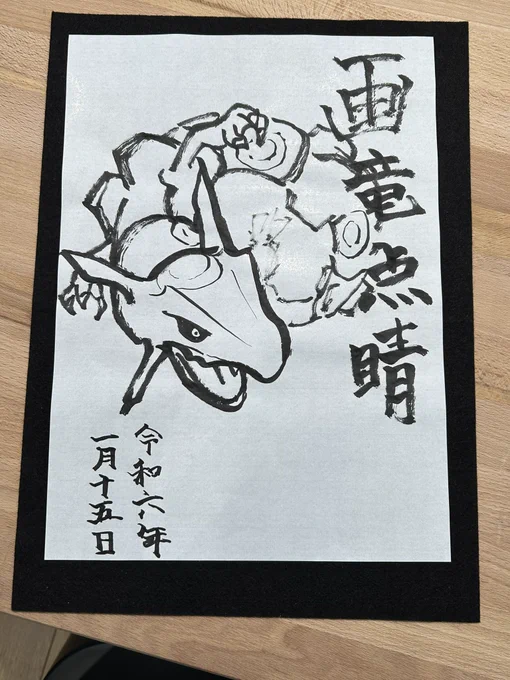 画竜点晴
令和六年
一月十五日